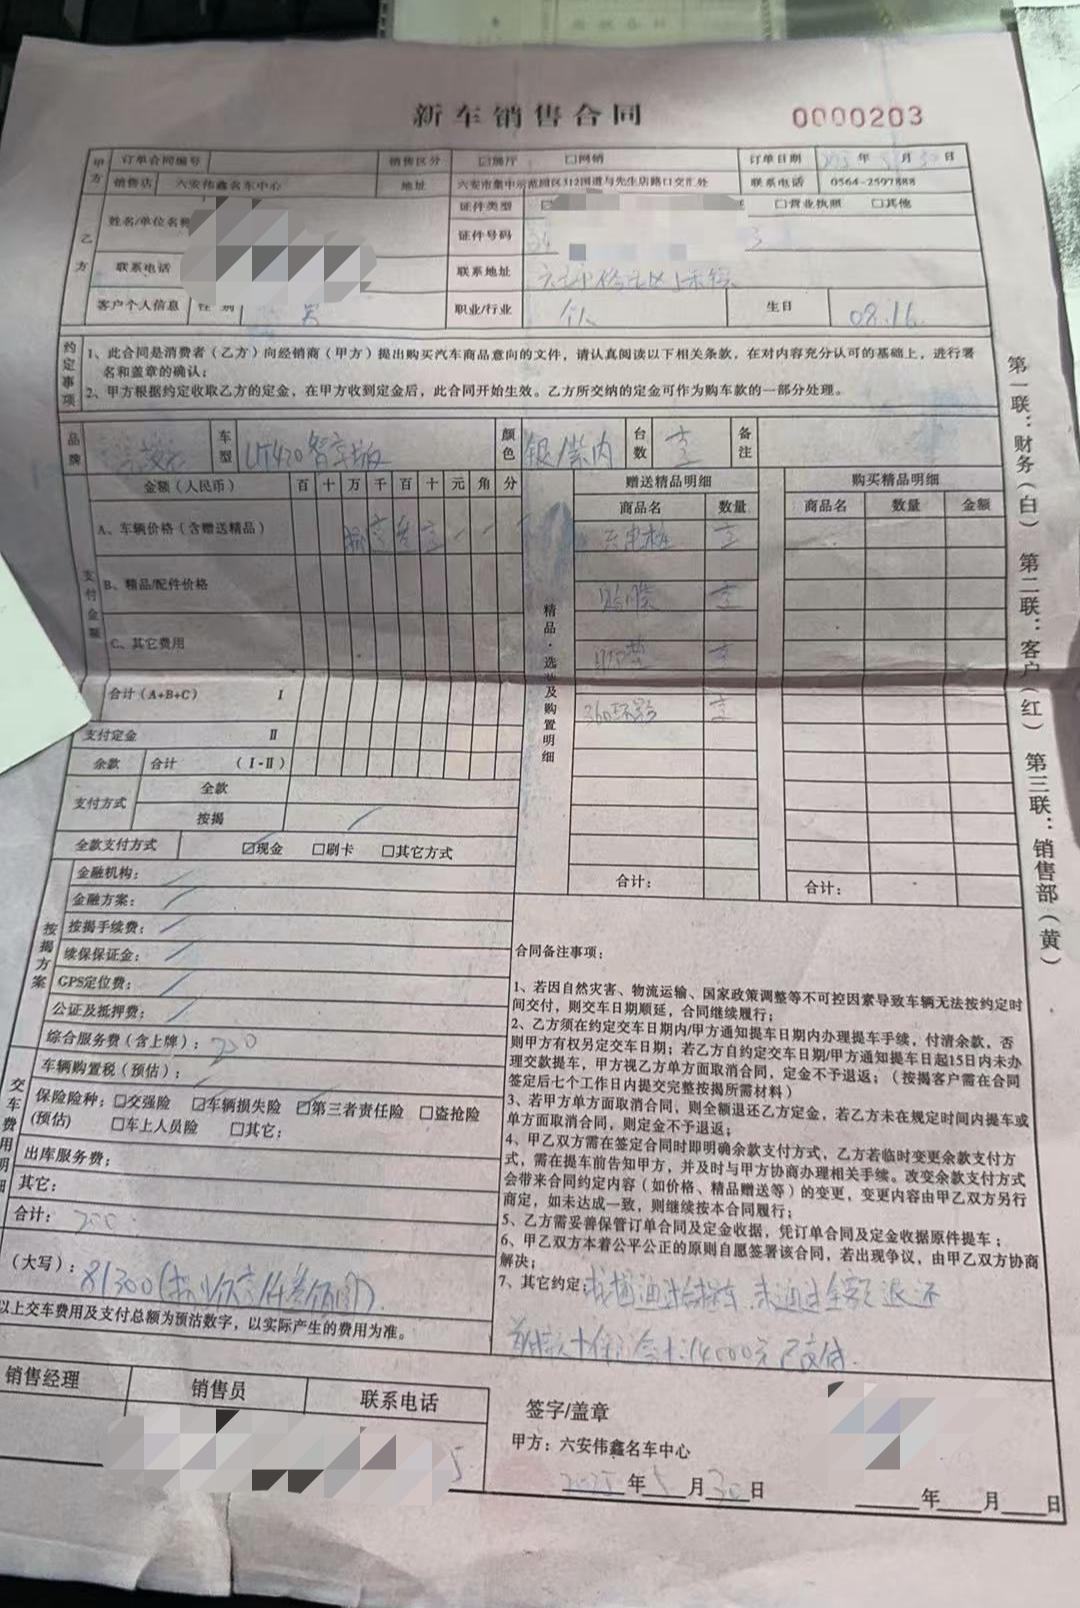 新车销售合同
0000203
甲方 订单合同编号 销售区分 展厅 网销 订单日期 年 月 日
销售店 六安伟鑫名车中心 地址 六安市集中示范园区312国道与先生店路口交汇处 联系电话 0564-2597888
乙方 姓名/单位名称 证件类型 营业执照 其他
证件号码
联系电话 联系地址
客户个人信息 性别 男 职业/行业 个人 生日 08.16
约定事项
1、此合同是消费者（乙方）向经销商（甲方）提出购买汽车商品意向的文件，请认真阅读以下相关条款，在对内容充分认可的基础上，进行署
名和盖章的确认；
2、甲方根据约定收取乙方的定金，在甲方收到定金后，此合同开始生效。乙方所交纳的定金可作为购车款的一部分处理。
品牌 车型 UT420智享版 颜色 银/紫内 台数 壹 备注
支付金额 金额（人民币） 百 十 万 千 百 十 元 角 分
A、车辆价格（含赠送精品）
B、精品/配件价格
C、其它费用
合计（A+B+C） I
支付定金 II
余款 合计 （I-II）
支付方式 全款
按揭
全款支付方式 现金 刷卡 其它方式
精品·选装及购置明细
赠送精品明细 购买精品明细
商品名 数量 商品名 数量 金额
充电桩 壹
贴膜 壹
脚垫 壹
360环影 壹
合计： 合计：
按揭方案
金融机构：
金融方案：
按揭手续费：
续保保证金：
GPS定位费：
公证及抵押费：
综合服务费（含上牌）： 200
交车费用明细
车辆购置税（预估）：
保险险种： 交强险 车辆损失险 第三者责任险 盗抢险
(预估) 车上人员险 其它：
出库服务费：
其它：
合计： 200
（大写）： 81300
以上交车费用及支付总额为预沽数字，以实际产生的费用为准。
合同备注事项：
1、若因自然灾害、物流运输、国家政策调整等不可控因素导致车辆无法按约定时
间交付，则交车日期顺延，合同继续履行；
2、乙方须在约定交车日期内/甲方通知提车日期内办理提车手续，付清余款，否
则甲方有权另定交车日期；若乙方自约定交车日期/甲方通知提车日起15日内未办
理交款提车，甲方视乙方单方面取消合同，定金不予退返；（按揭客户需在合同
签定后七个工作日内提交完整按揭所需材料）
3、若甲方单方面取消合同，则全额退还乙方定金，若乙方未在规定时间内提车或
单方面取消合同，则定金不予退返；
4、甲乙双方需在签定合同时即明确余款支付方式，乙方若临时变更余款支付方
式，需在提车前告知甲方，并及时与甲方协商办理相关手续。改变余款支付方式
会带来合同约定内容（如价格、精品赠送等）的变更，变更内容由甲乙双方另行
商定，如未达成一致，则继续按本合同履行；
5、乙方需妥善保管订单合同及定金收据，凭订单合同及定金收据原件提车；
6、甲乙双方本着公平公正的原则自愿签署该合同，若出现争议，由甲乙双方协商
解决；
7、其它约定： 按揭通过给提车 未通过全额退还
首付款+保证金+：14000元已交付.
销售经理 销售员 联系电话
5
签字/盖章
甲方：六安伟鑫名车中心
2025年5月30日 年 月 日
第一联：财务（白） 第二联：客户（红） 第三联：销售部（黄）